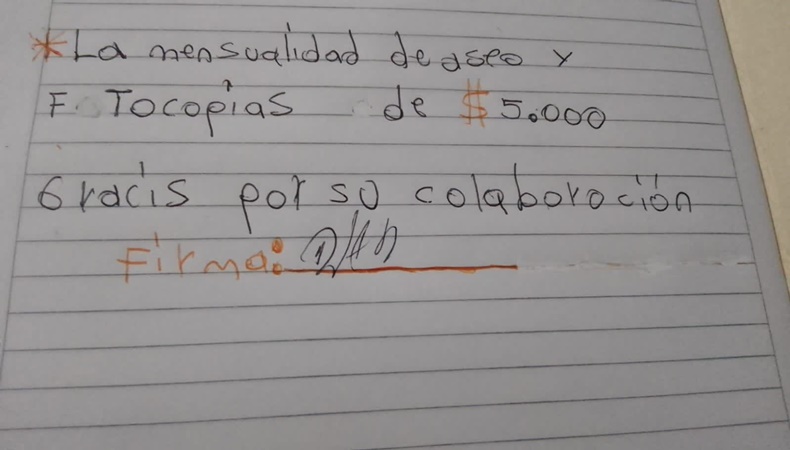 *La mensualidad de aseo y
F. Tocopias de $ 5.000
Gracis por su colaboroción
Firma: